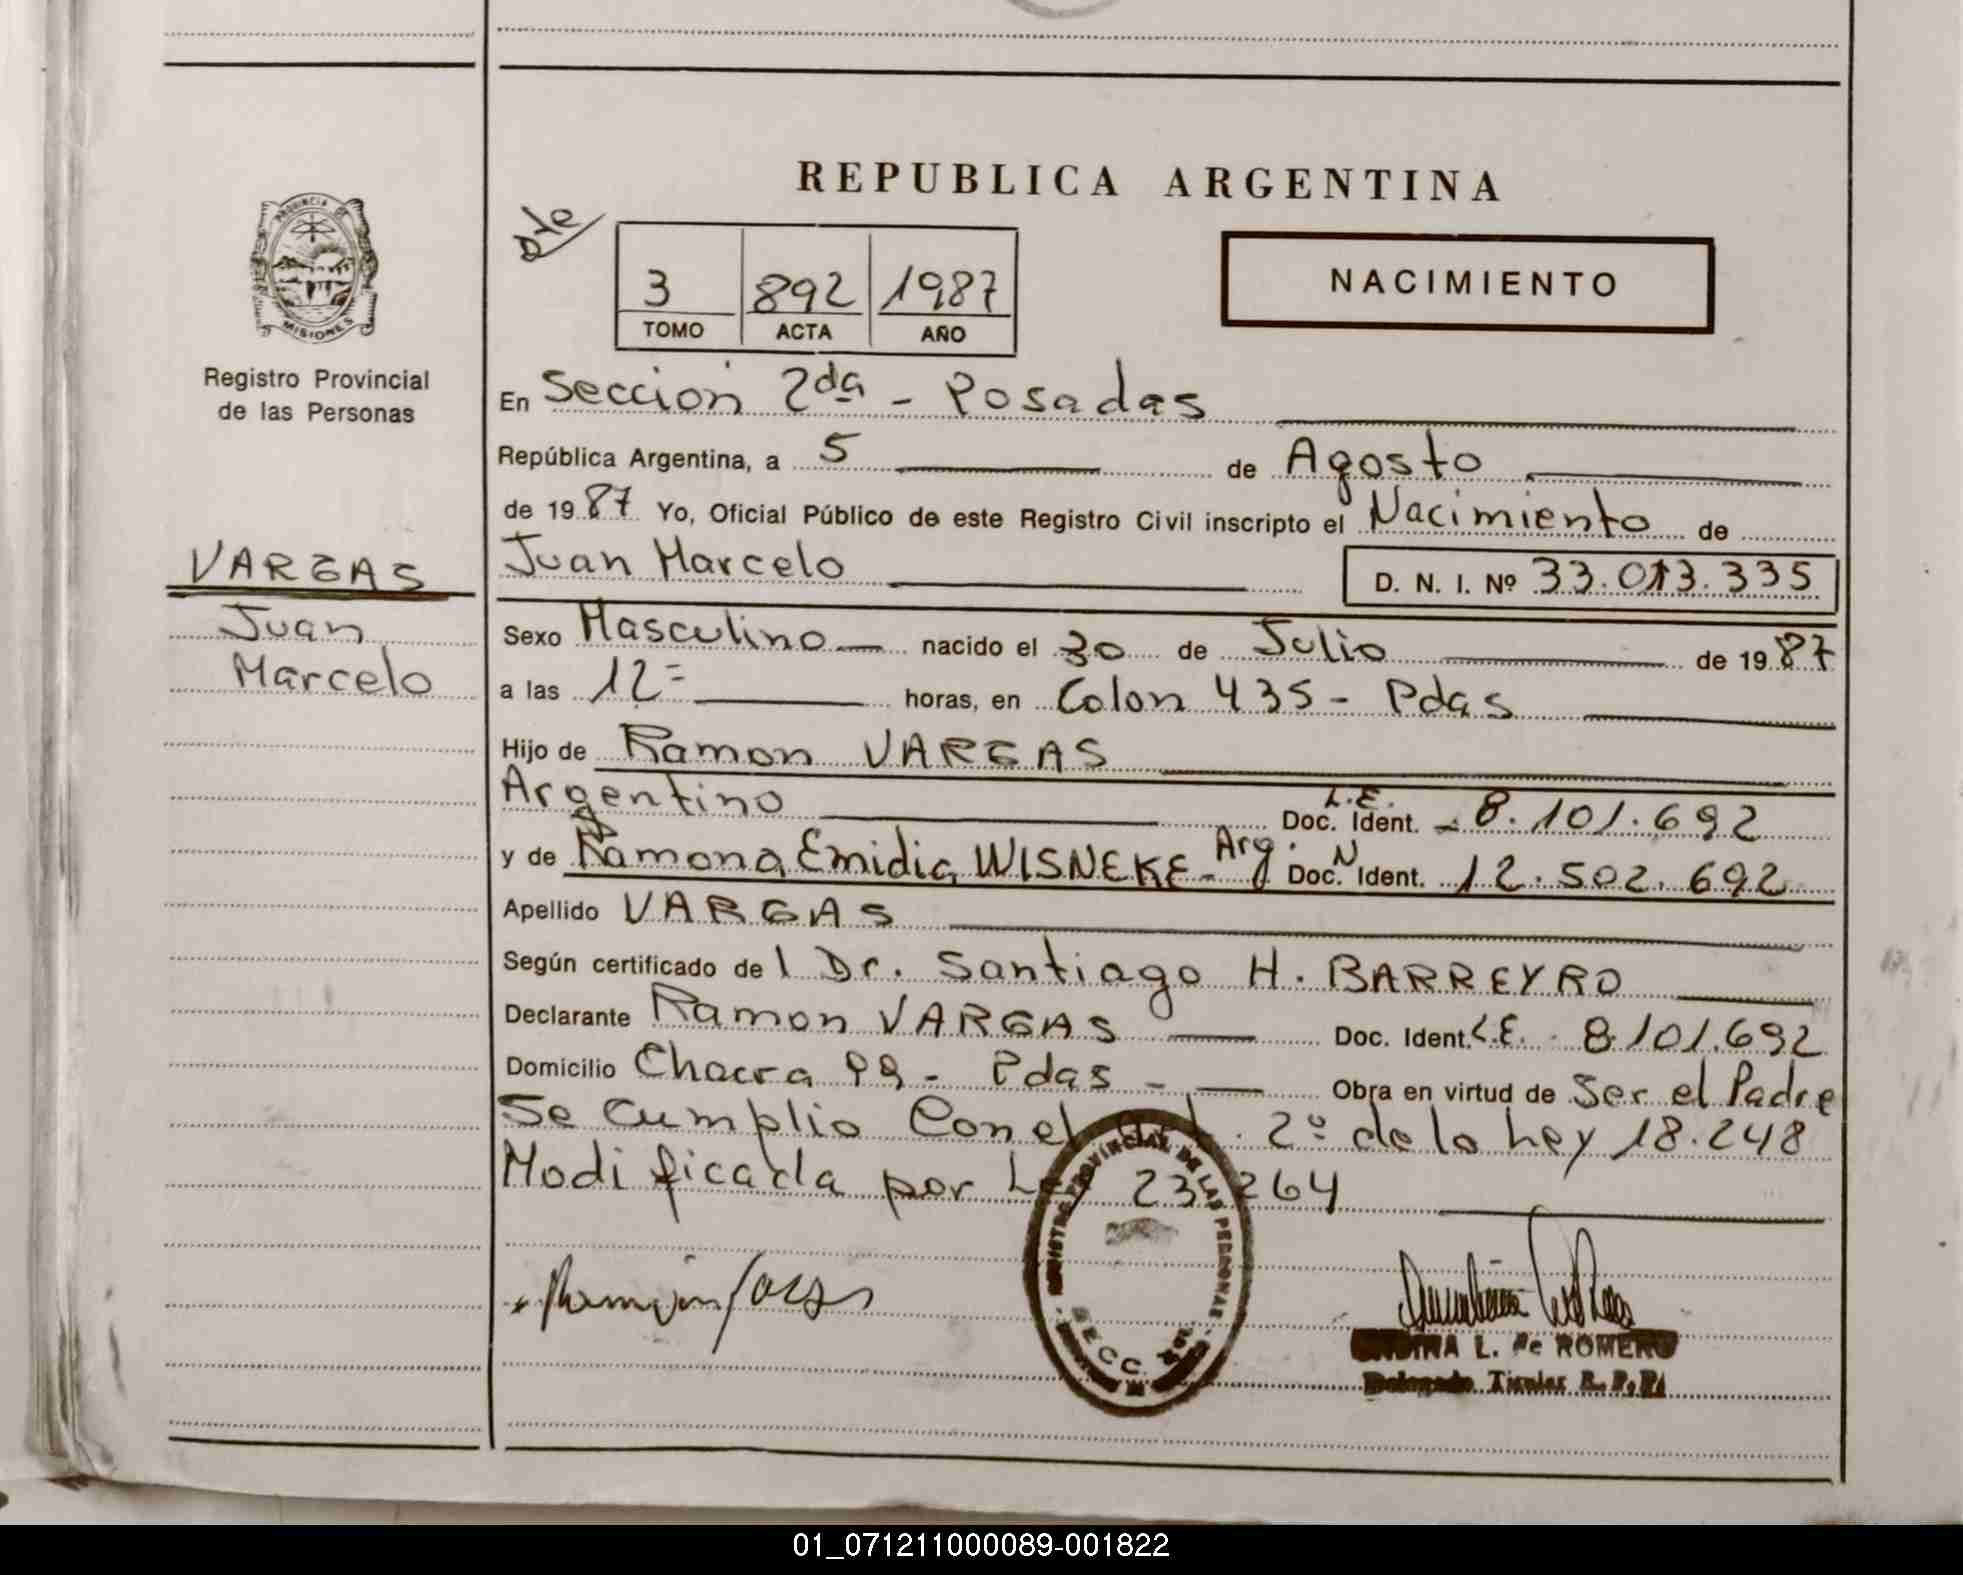 REPUBLICA ARGENTINA
Dte
3 892 1987
TOMO ACTA AÑO
NACIMIENTO
PROVINCIA DE MISIONES
Registro Provincial
de las Personas
VARGAS
Juan
Marcelo
En Seccion 2da - Posadas
República Argentina, a 5 de Agosto
de 1987 Yo, Oficial Público de este Registro Civil inscripto el Nacimiento de
Juan Marcelo D. N. I. Nº 33.013.335
Sexo Masculino nacido el 30 de Julio de 1987
a las 12= horas, en Colon 435 - Pdas
Hijo de Ramon VARGAS
Argentino L.E. Doc. Ident. - 8.101.692
y de Ramona Emidia WISNEKE - Arg. Doc. N Ident. 12.502.692
Apellido VARGAS
Según certificado de l Dr. Santiago H. BARREYRO
Declarante Ramon VARGAS Doc. Ident. L.E. 8.101.692
Domicilio Chacra 99 - Pdas - Obra en virtud de Ser el Padre
Se Cumplio Con el Art. 2º de la Ley 18.248
Modificada por Ley 23.264
REGISTRO PROVINCIAL DE LAS PERSONAS
SECC. 2da.
L. de ROMERO
Delegado Titular R. P. P.
01_071211000089-001822